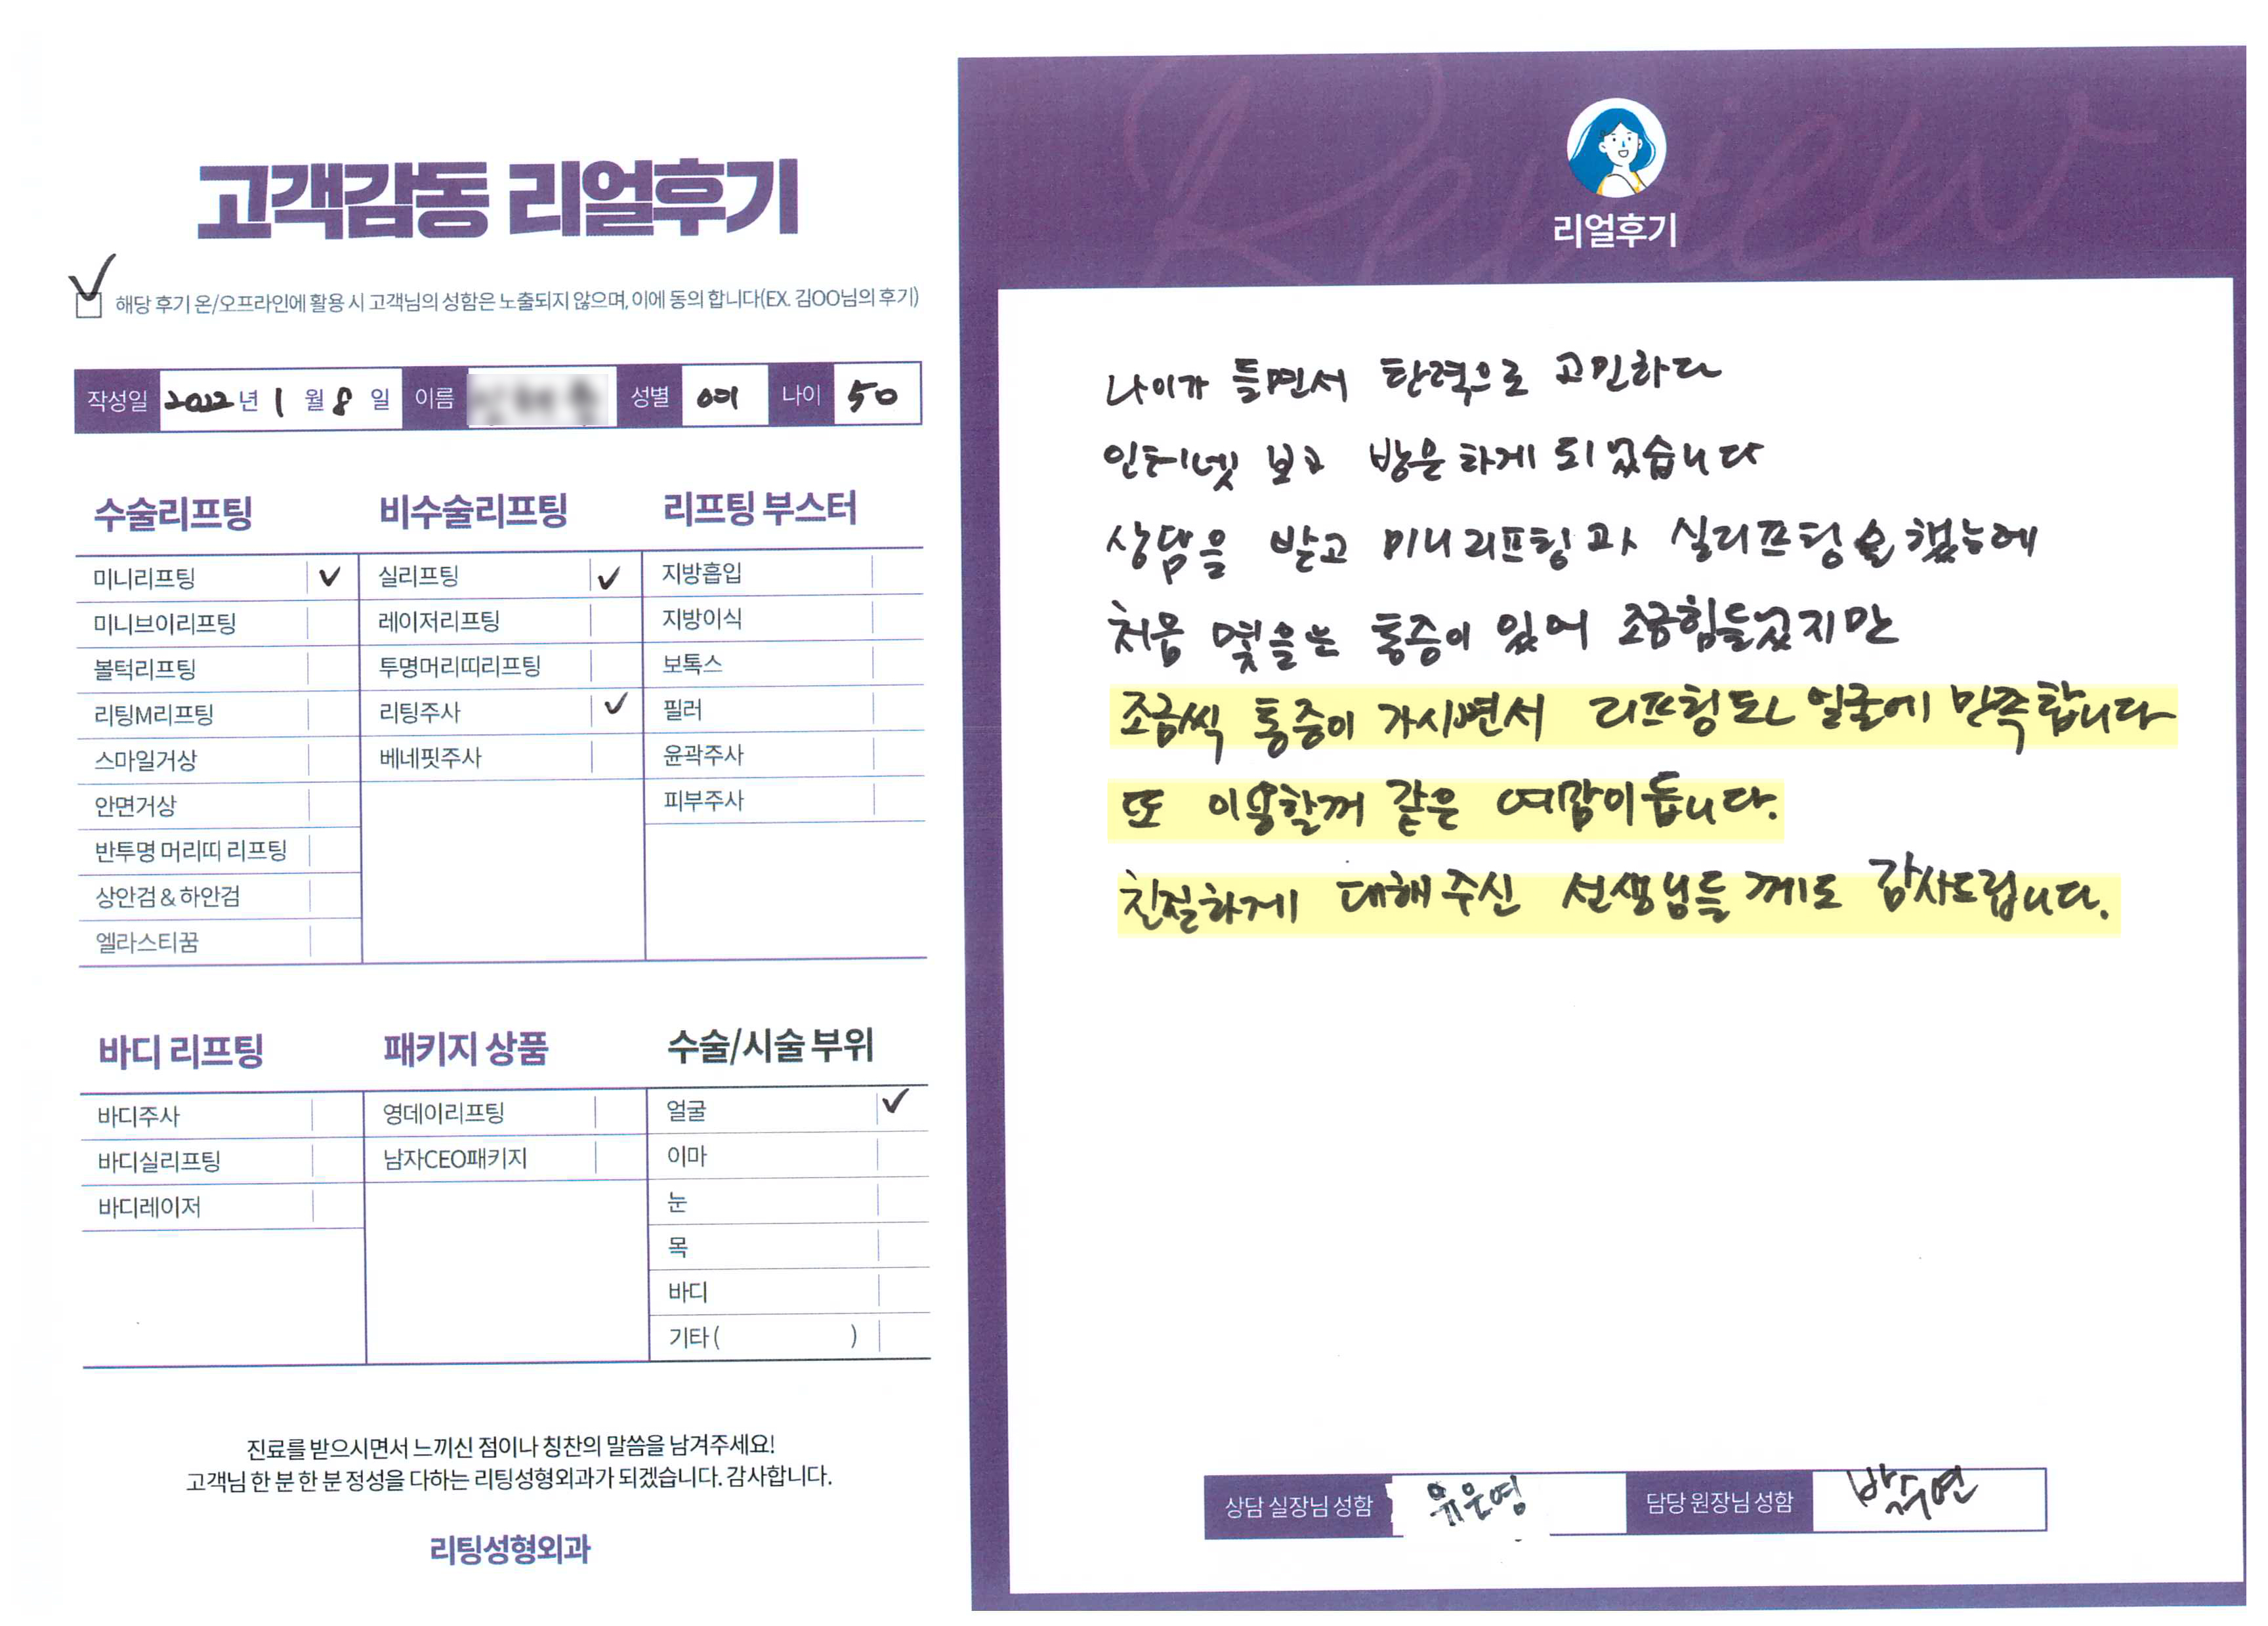 고객감동 리얼후기
✓ 해당 후기 온/오프라인에 활용 시 고객님의 성함은 노출되지 않으며, 이에 동의 합니다(EX. 김OO님의 후기)
작성일 2022년 1월 8일 이름 성별 여 나이 50
수술리프팅
미니리프팅 ✓
미니브이리프팅
볼턱리프팅
리팅M리프팅
스마일거상
안면거상
반투명 머리띠 리프팅
상안검 & 하안검
엘라스티꿈
비수술리프팅
실리프팅 ✓
레이저리프팅
투명머리띠리프팅
리팅주사 ✓
베네핏주사
리프팅 부스터
지방흡입
지방이식
보톡스
필러
윤곽주사
피부주사
바디 리프팅
바디주사
바디실리프팅
바디레이저
패키지 상품
영데이리프팅
남자CEO패키지
수술/시술 부위
얼굴 ✓
이마
눈
목
바디
기타 ( )
진료를 받으시면서 느끼신 점이나 칭찬의 말씀을 남겨주세요!
고객님 한 분 한 분 정성을 다하는 리팅성형외과가 되겠습니다. 감사합니다.
리팅성형외과
Review
리얼후기
나이가 들면서 탄력으로 고민하다
인터넷 보고 방문하게 되었습니다
상담을 받고 미니리프팅과 실리프팅을 했는데
처음 몇일은 통증이 있어 조금힘들었지만
조금씩 통증이 가시면서 리프팅된 얼굴에 만족합니다
또 이용할꺼 같은 예감이듭니다.
친절하게 대해주신 선생님들께도 감사드립니다.
상담 실장님 성함 유은영 담당 원장님 성함 박수연